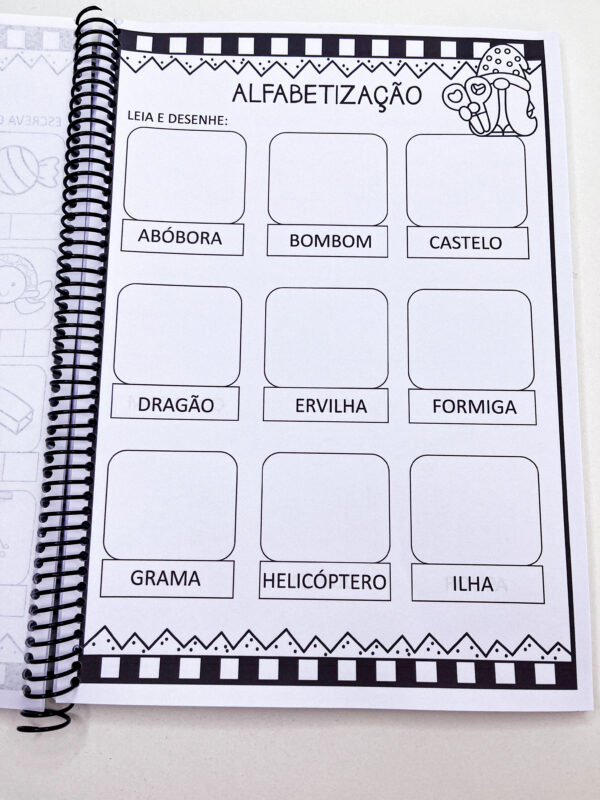 ALFABETIZAÇÃO
LEIA E DESENHE:
ABÓBORA
BOMBOM
CASTELO
DRAGÃO
ERVILHA
FORMIGA
GRAMA
HELICÓPTERO
ILHA